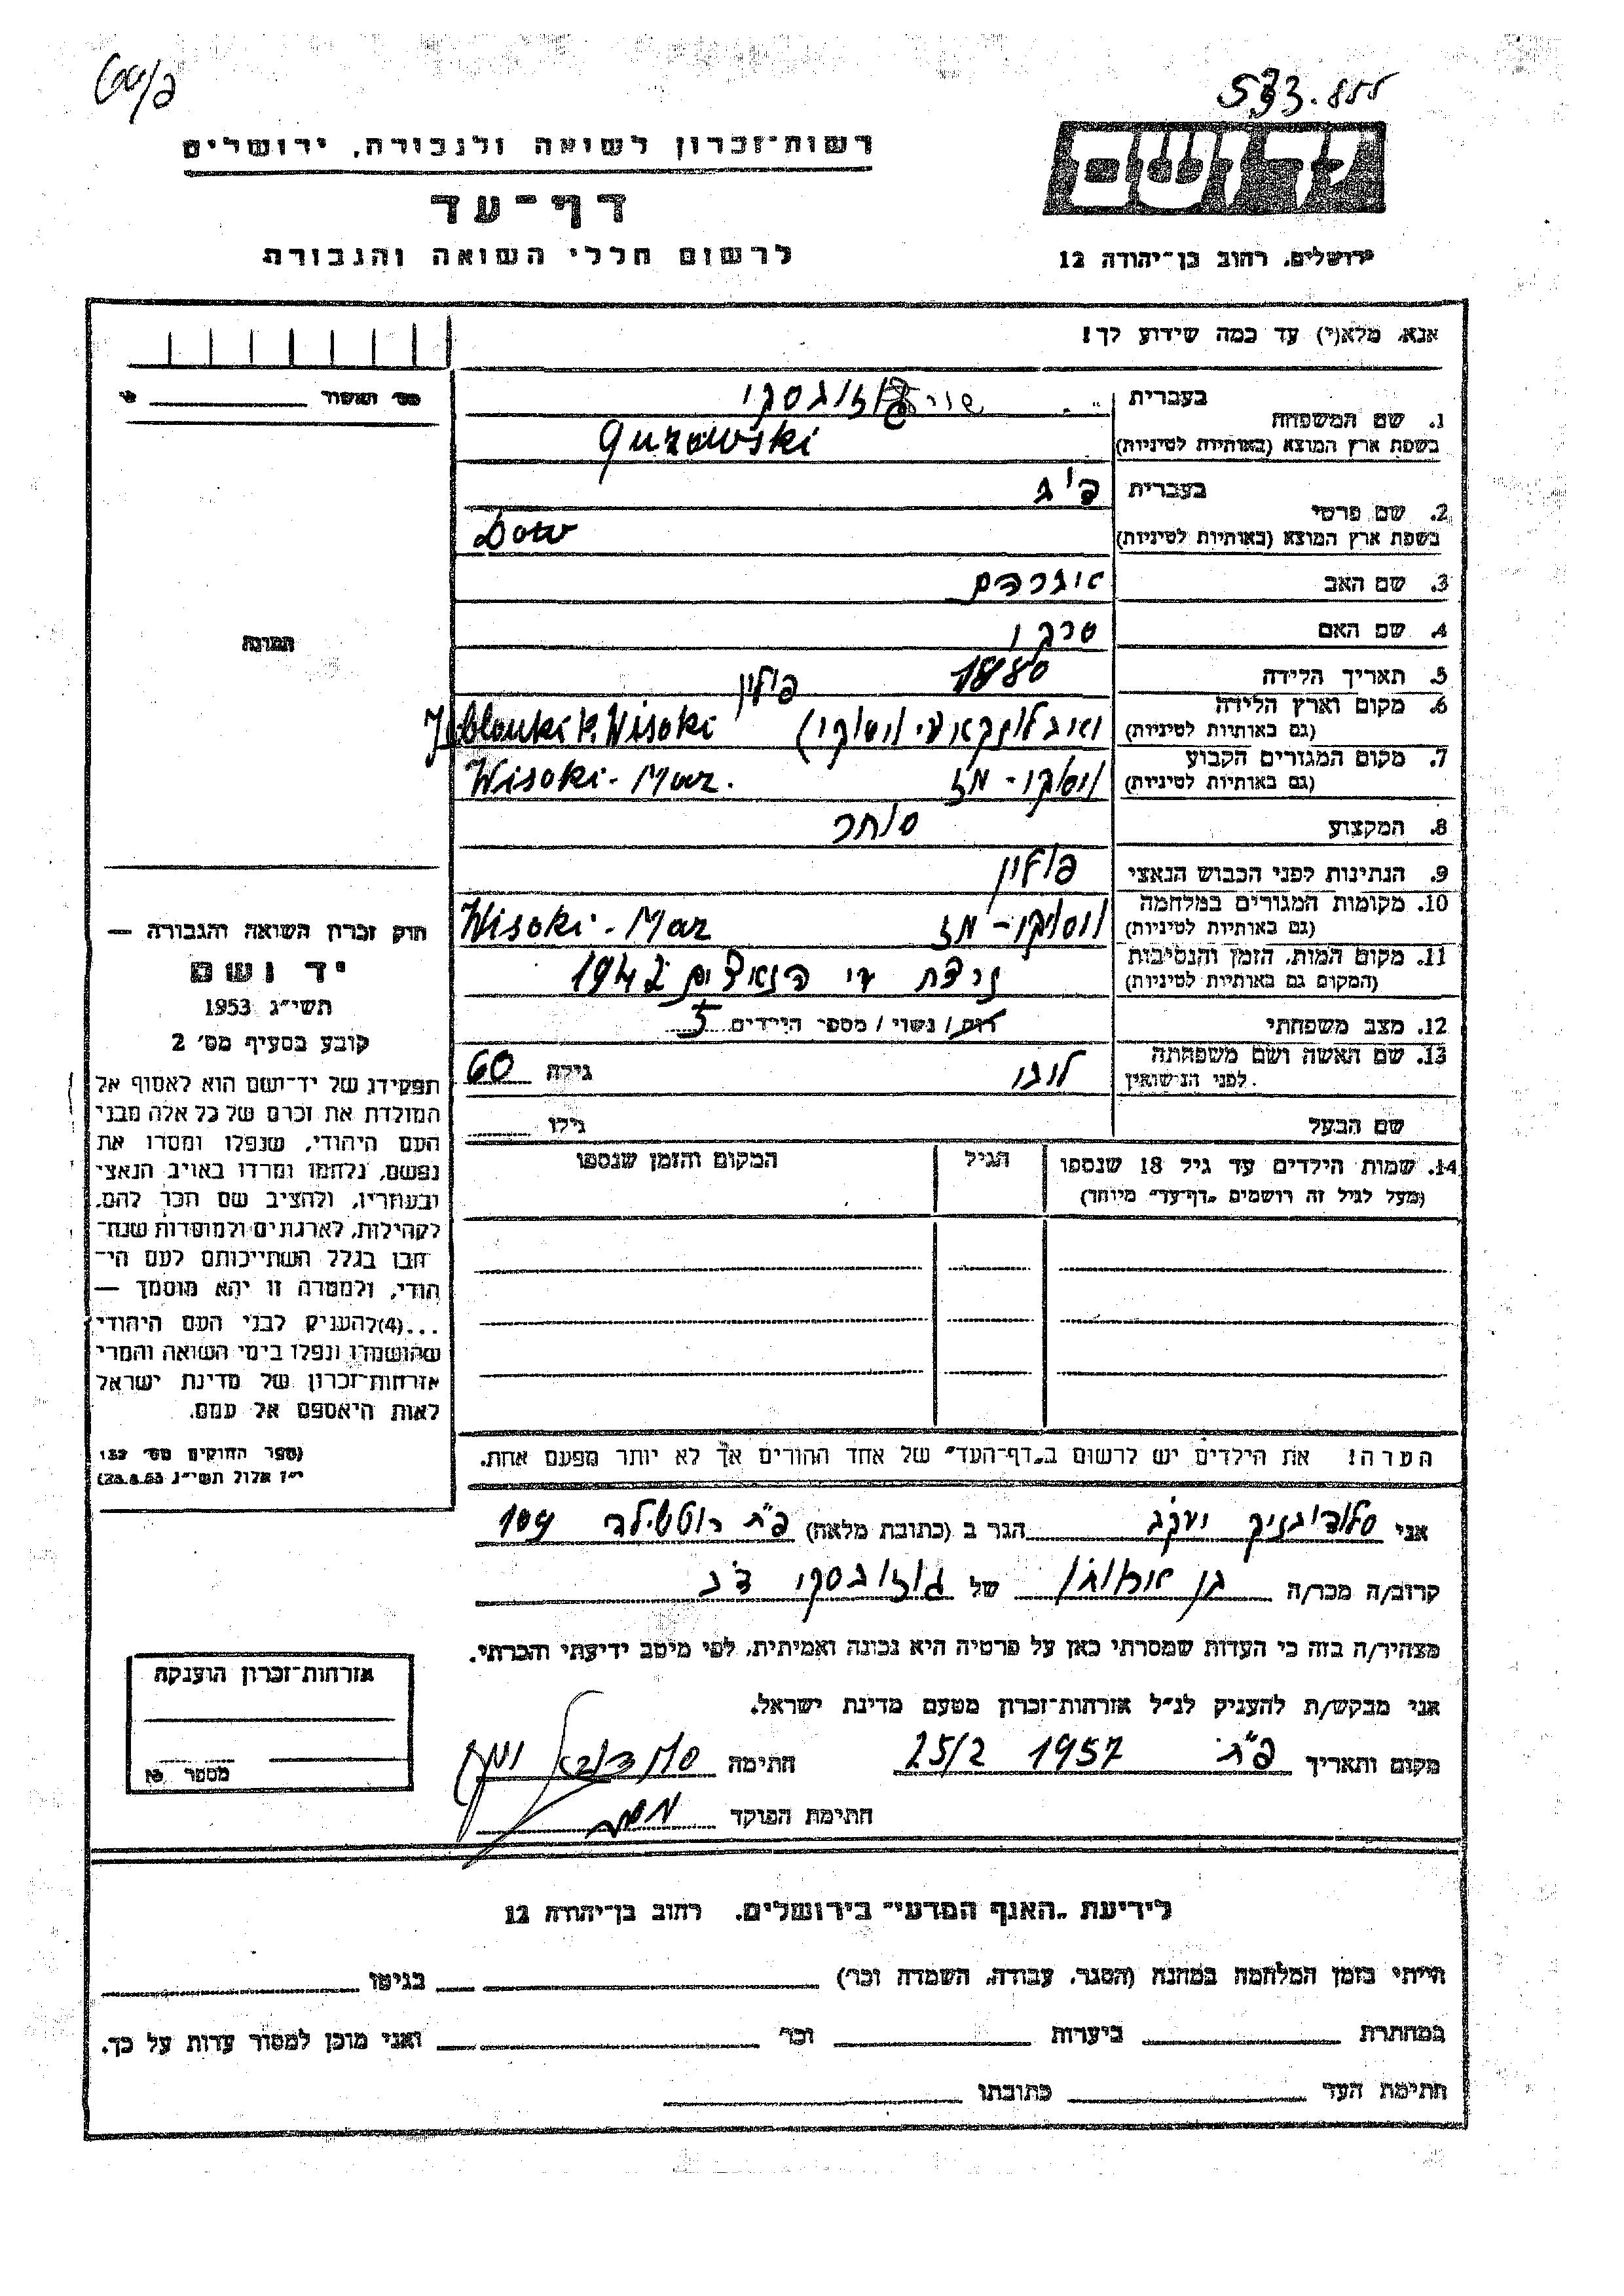 533.855
רשות־זכרון לשואה ולגבורה, ירושלים
יד ושם
דף־עד
ירושלים, רחוב בן־יהודה 12
לרשום חללי השואה והגבורה
אנא, מלא(י) עד כמה שידוע לך!
בעברית
1. שם המשפחה
בשפת ארץ המוצא (באותיות לטיניות) Guzowski
2. שם פרטי
בעברית
בשפת ארץ המוצא (באותיות לטיניות) Dow
3. שם האב אברהם
4. שם האם
5. תאריך הלידה 1880
6. מקום וארץ הלידה פולין
(גם באותיות לטיניות) Jablonki k. Wisoki
7. מקום המגורים הקבוע
(גם באותיות לטיניות) Wisoki - Maz.
8. המקצוע סוחר
9. הנתינות לפני הכבוש הנאצי פולין
10. מקומות המגורים במלחמה
(גם באותיות לטיניות) Wisoki - Maz
11. מקום המות, הזמן והנסיבות
(המקום גם באותיות לטיניות) נרצח ע״י הנאצים 1942
12. מצב משפחתי רוק / נשוי / מספר הילדים 5
13. שם האשה ושם משפחתה
לפני הנישואין גילה 60
שם הבעל גילו
14. שמות הילדים עד גיל 18 שנספו הגיל המקום והזמן שנספו
(מעל לגיל זה רושמים „דף־עד״ מיוחד)
הערה: את הילדים יש לרשום ב„דף־העד״ של אחד ההורים אך לא יותר מפעם אחת.
אני יעקב הגר ב (כתובת מלאה) פ״ת רוטשילד 109
קרוב/ה מכר/ה של גוזובסקי דב
מצהיר/ה בזה כי העדות שמסרתי כאן על פרטיה היא נכונה ואמיתית, לפי מיטב ידיעתי והכרתי.
אני מבקש/ת להעניק לנ״ל אזרחות־זכרון מטעם מדינת ישראל.
מקום ותאריך פ״ת 25/2 1957 חתימה
חתימת הפוקד
מס׳ תאשור
תמונה
חוק זכרון השואה והגבורה —
יד ושם
תשי״ג 1953
קובע בסעיף מס׳ 2
תפקידו של יד־ושם הוא לאסוף אל
המולדת את זכרם של כל אלה מבני
העם היהודי, שנפלו ומסרו את
נפשם, נלחמו ומרדו באויב הנאצי
ובעוזריו, ולהציב שם וזכר להם,
לקהילות, לארגונים ולמוסדות שנח־
רבו בגלל השתייכותם לעם הי־
הודי, ולמטרה זו יהא מוסמך —
...(4)להעניק לבני העם היהודי
שהושמדו ונפלו בימי השואה והמרי
אזרחות־זכרון של מדינת ישראל
לאות היאספם אל עמם.
(ספר החוקים מס׳ 132
י״ז אלול תשי״ג 28.8.53)
אזרחות־זכרון הוענקה
מספר
לידיעת „האגף המדעי״ בירושלים, רחוב בן־יהודה 12
הייתי בזמן המלחמה במחנה (הסגר, עבודה, השמדה וכו׳) בגיטו
במחתרת ביערות וכו׳ ואני מוכן למסור עדות על כך.
חתימת העד כתובתו